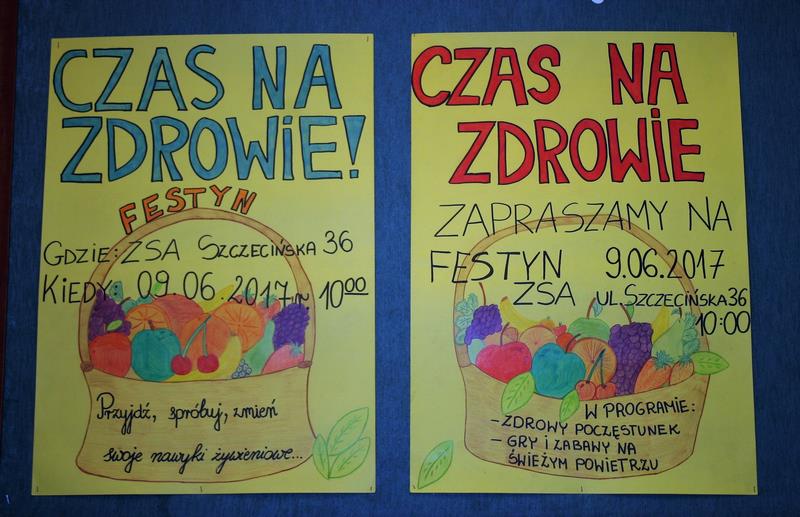 CZAS NA
ZDROWiE!
FESTYN
GDZiE: ZSA SZCZECIŃSKA 36
KiEDY: 09.06.2017r. 10⁰⁰
Przyjdź, spróbuj, zmień
swoje nawyki żywieniowe...
CZAS NA
ZDROWiE
ZAPRASZAMY NA
FESTYN 9.06.2017
ZSA UL.SZCZECIŃSKA36
10:00
W PROGRAMiE:
-ZDROWY POCZĘSTUNEK
- GRY i ZABAWY NA
ŚWIEŻYM POWIETRZU